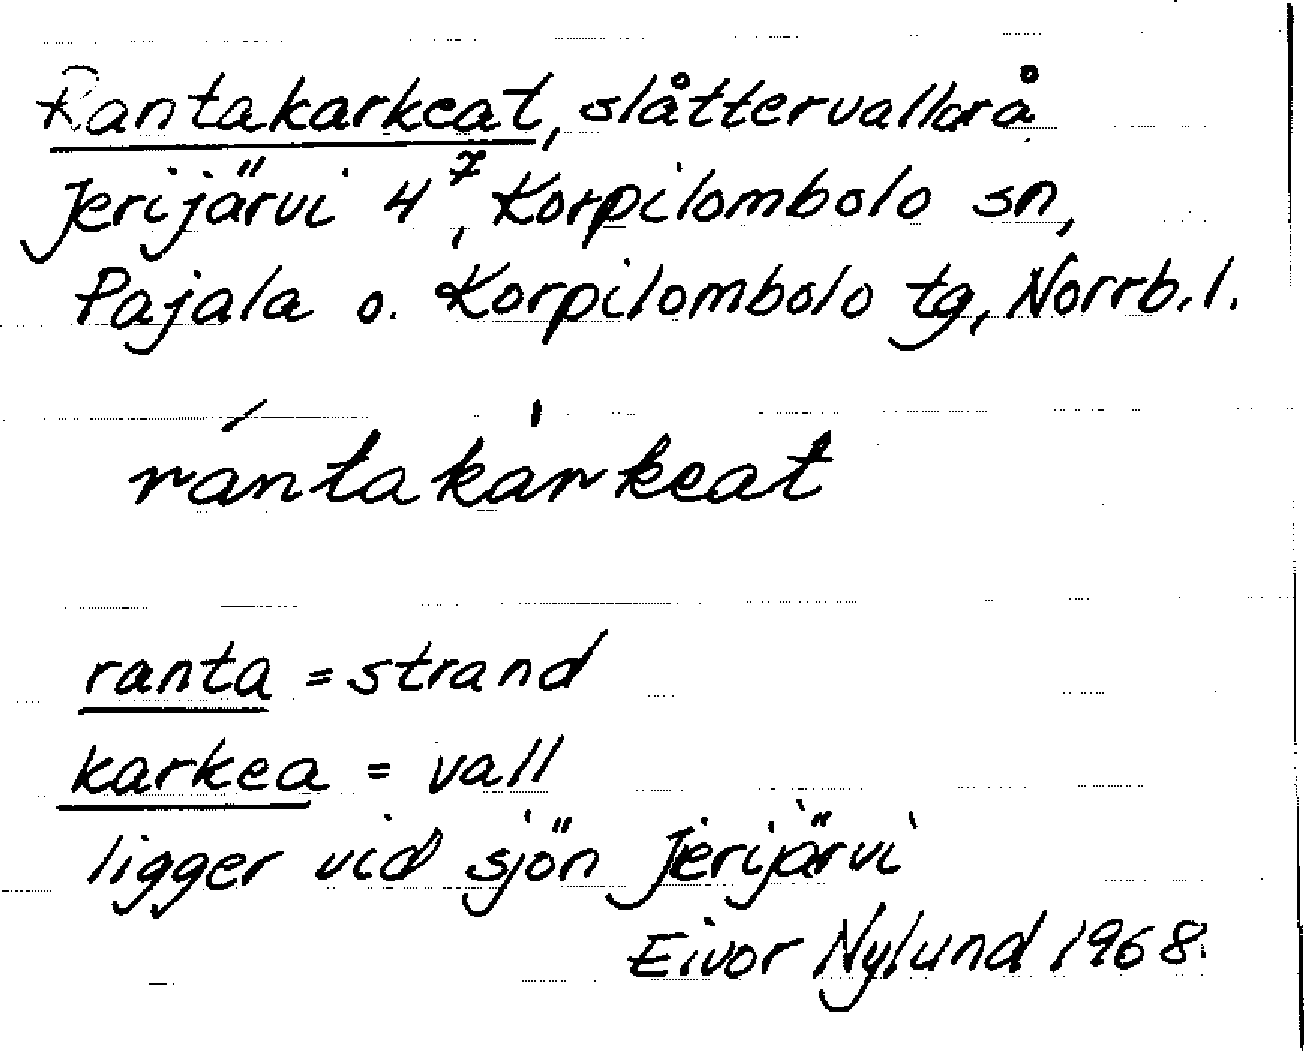 Rantakarkeat, slåttervall på
Jerijärvi 4⁷, Korpilombolo sn,
Pajala o. Korpilombolo tg, Norrb. l.
rántakàrkeat
ranta = strand
karkea = vall
ligger vid sjön Jerijärvi
Eivor Nylund 1968.